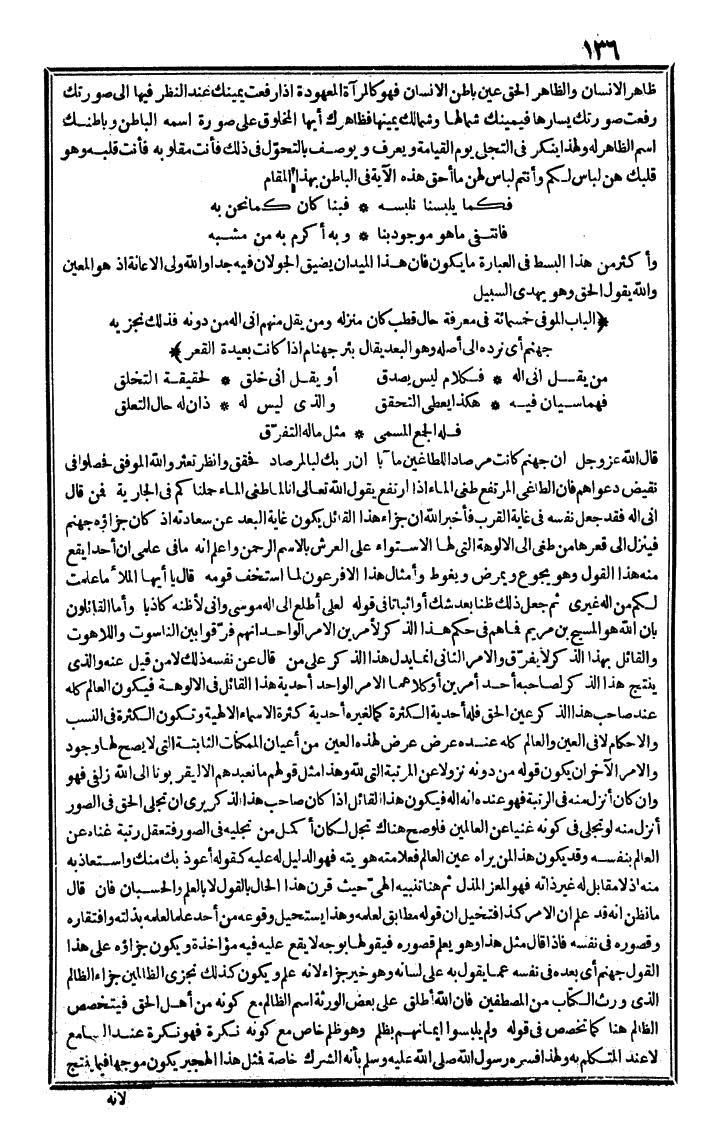 ١٣٦
ظاهر الانسان والظاهر الحق عين باطن الانسان فهو كالمرآة المعهودة اذا رفعت يمينك عند النظر فيها الى صورتك
رفعت صورتك يسارها فيمينك شمالها وشمالك يمينها فظاهرك أيها المخلوق على صورة اسمه الباطن وباطنك
اسم الظاهر له ولهذا ينكر فى التجلى يوم القيامة ويعرف ويوصف بالتحوّل فى ذلك فأنت مقلوبه فأنت قلبه وهو
قلبك هن لباس لكم وأنتم لباس لهن ما أحق هذه الآية فى الباطن بهذا المقام
فكما يلبسنا نلبسه * فبنا كان كمانحن به
فانتفى ماهو موجود بنا * وبه أكرم به من مشبه
وأكثر من هذا البسط فى العبارة ما يكون فان هذا الميدان يضيق الجولان فيه جدا والله ولى الاعانة اذ هو المعين
والله يقول الحق وهو يهدى السبيل
﴿الباب الموفى خمسمائة فى معرفة حال قطب كان منزله ومن يقل منهم انى اله من دونه فذلك نجزيه
جهنم أى نرده الى أصله وهو البعد يقال بئر جهنام اذا كانت بعيدة القعر﴾
من يقل انى اله * فكلام ليس يصدق أو يقل انى خلق * لحقيقة التخلق
فهما سيان فيه * هكذا يعطى التحقق والذى ليس له * ذان له حال التعلق
فله الجمع المسمى * مثل ماله التفرّق
قال الله عزوجل ان جهنم كانت مرصادا للطاغين مآبا ان ربك لبالمرصاد فحقق وانظر تعثر والله الموفق فحصلوا فى
نقيض دعواهم فان الطاغى المرتفع طغى الماء اذا ارتفع يقول الله تعالى انا لما طغى الماء حملناكم فى الجارية فمن قال
انى اله فقد جعل نفسه فى غاية القرب فأخبر الله ان جزاء هذا القائل يكون غاية البعد عن سعادته اذ كان جزاؤه جهنم
فينزل الى قعرها من طغى الى الالوهة التى لها الاستواء على العرش بالاسم الرحمن واعلم انه مافى علمى ان أحدا يقع
منه هذا القول وهو يجوع ويمرض ويغوط وأمثال هذا الا فرعون لما استخف قومه قال يا أيها الملأ ما علمت
لكم من اله غيرى ثم جعل ذلك ظنا بعد شك أو اثباتا فى قوله لعلى أطلع الى اله موسى وانى لأظنه كاذبا وأما القائلون
بان الله هو المسيح بن مريم فماهم فى حكم هذا الذكر لأمرين الامر الواحد انهم فرّقوا بين الناسوت واللاهوت
والقائل بهذا الذكر لا يفرّق والامر الثانى انما يدل هذا الذكر على من قال عن نفسه ذلك لا من قيل عنه والذى
ينتج هذا الذكر لصاحبه أحد أمرين أو كلاهما الامر الواحد أحدية هذا القائل فى الالوهة فيكون العالم كله
عند صاحب هذا الذكر عين الحق فله أحدية الكثرة كما لغيره أحدية كثرة الاسماء الالهية وتكون الكثرة فى النسب
والاحكام لا فى العين والعالم كله عنده عرض عرض لهذه العين من أعيان الممكنات الثابتة التى لا يصح لها وجود
والامر الآخر ان يكون قوله من دونه نزولا عن المرتبة التى لله وهذا مثل قولهم ما نعبدهم الا ليقربونا الى الله زلفى فهو
وان كان أنزل منه فى الرتبة فهو عنده انه اله فيكون هذا القائل اذا كان صاحب هذا الذكر يرى ان تجلى الحق فى الصور
أنزل منه لو تجلى فى كونه غنيا عن العالمين فلو صح هناك تجل لكان أكمل من تجليه فى الصور فتعقل رتبة غناه عن
العالم بنفسه وقد يكون هذا لمن يراه عين العالم فعلامته هويته فهو الدليل له عليه كقوله أعوذ بك منك واستعاذ به
منه اذ لا مقابل له غير ذاته فهو المعز المذل ثم هنا تنبيه الهىّ حيث قرن هذا الحال بالقول لا بالعلم والحسبان فان قال
ما نظن انه قد علم ان الامر كذا فتخيل ان قوله مطابق لعلمه وهذا يستحيل وقوعه من أحد علما لعلمه بذلته وافتقاره
وقصوره فى نفسه فاذا قال مثل هذا وهو يعلم قصوره فيقولها بوجه لا يقع عليه فيه مؤاخذة ويكون جزاؤه على هذا
القول جهنم أى بعده فى نفسه عما يقول به على لسانه وهو خير جزاء لانه علم ويكون كذلك نجزى الظالمين جزاء الظالم
الذى ورث الكتاب من المصطفين فان الله أطلق على بعض الورثة اسم الظالم مع كونه من أهل الحق فيتخصص
الظالم هنا كما تخصص فى قوله ولم يلبسوا ايمانهم بظلم وهو ظلم خاص مع كونه نكرة فهو نكرة عند السامع
لا عند المتكلم به ولهذا فسره رسول الله صلى الله عليه وسلم بأنه الشرك خاصة فمثل هذا الهجير يكون موجها فيما ينتج
لانه